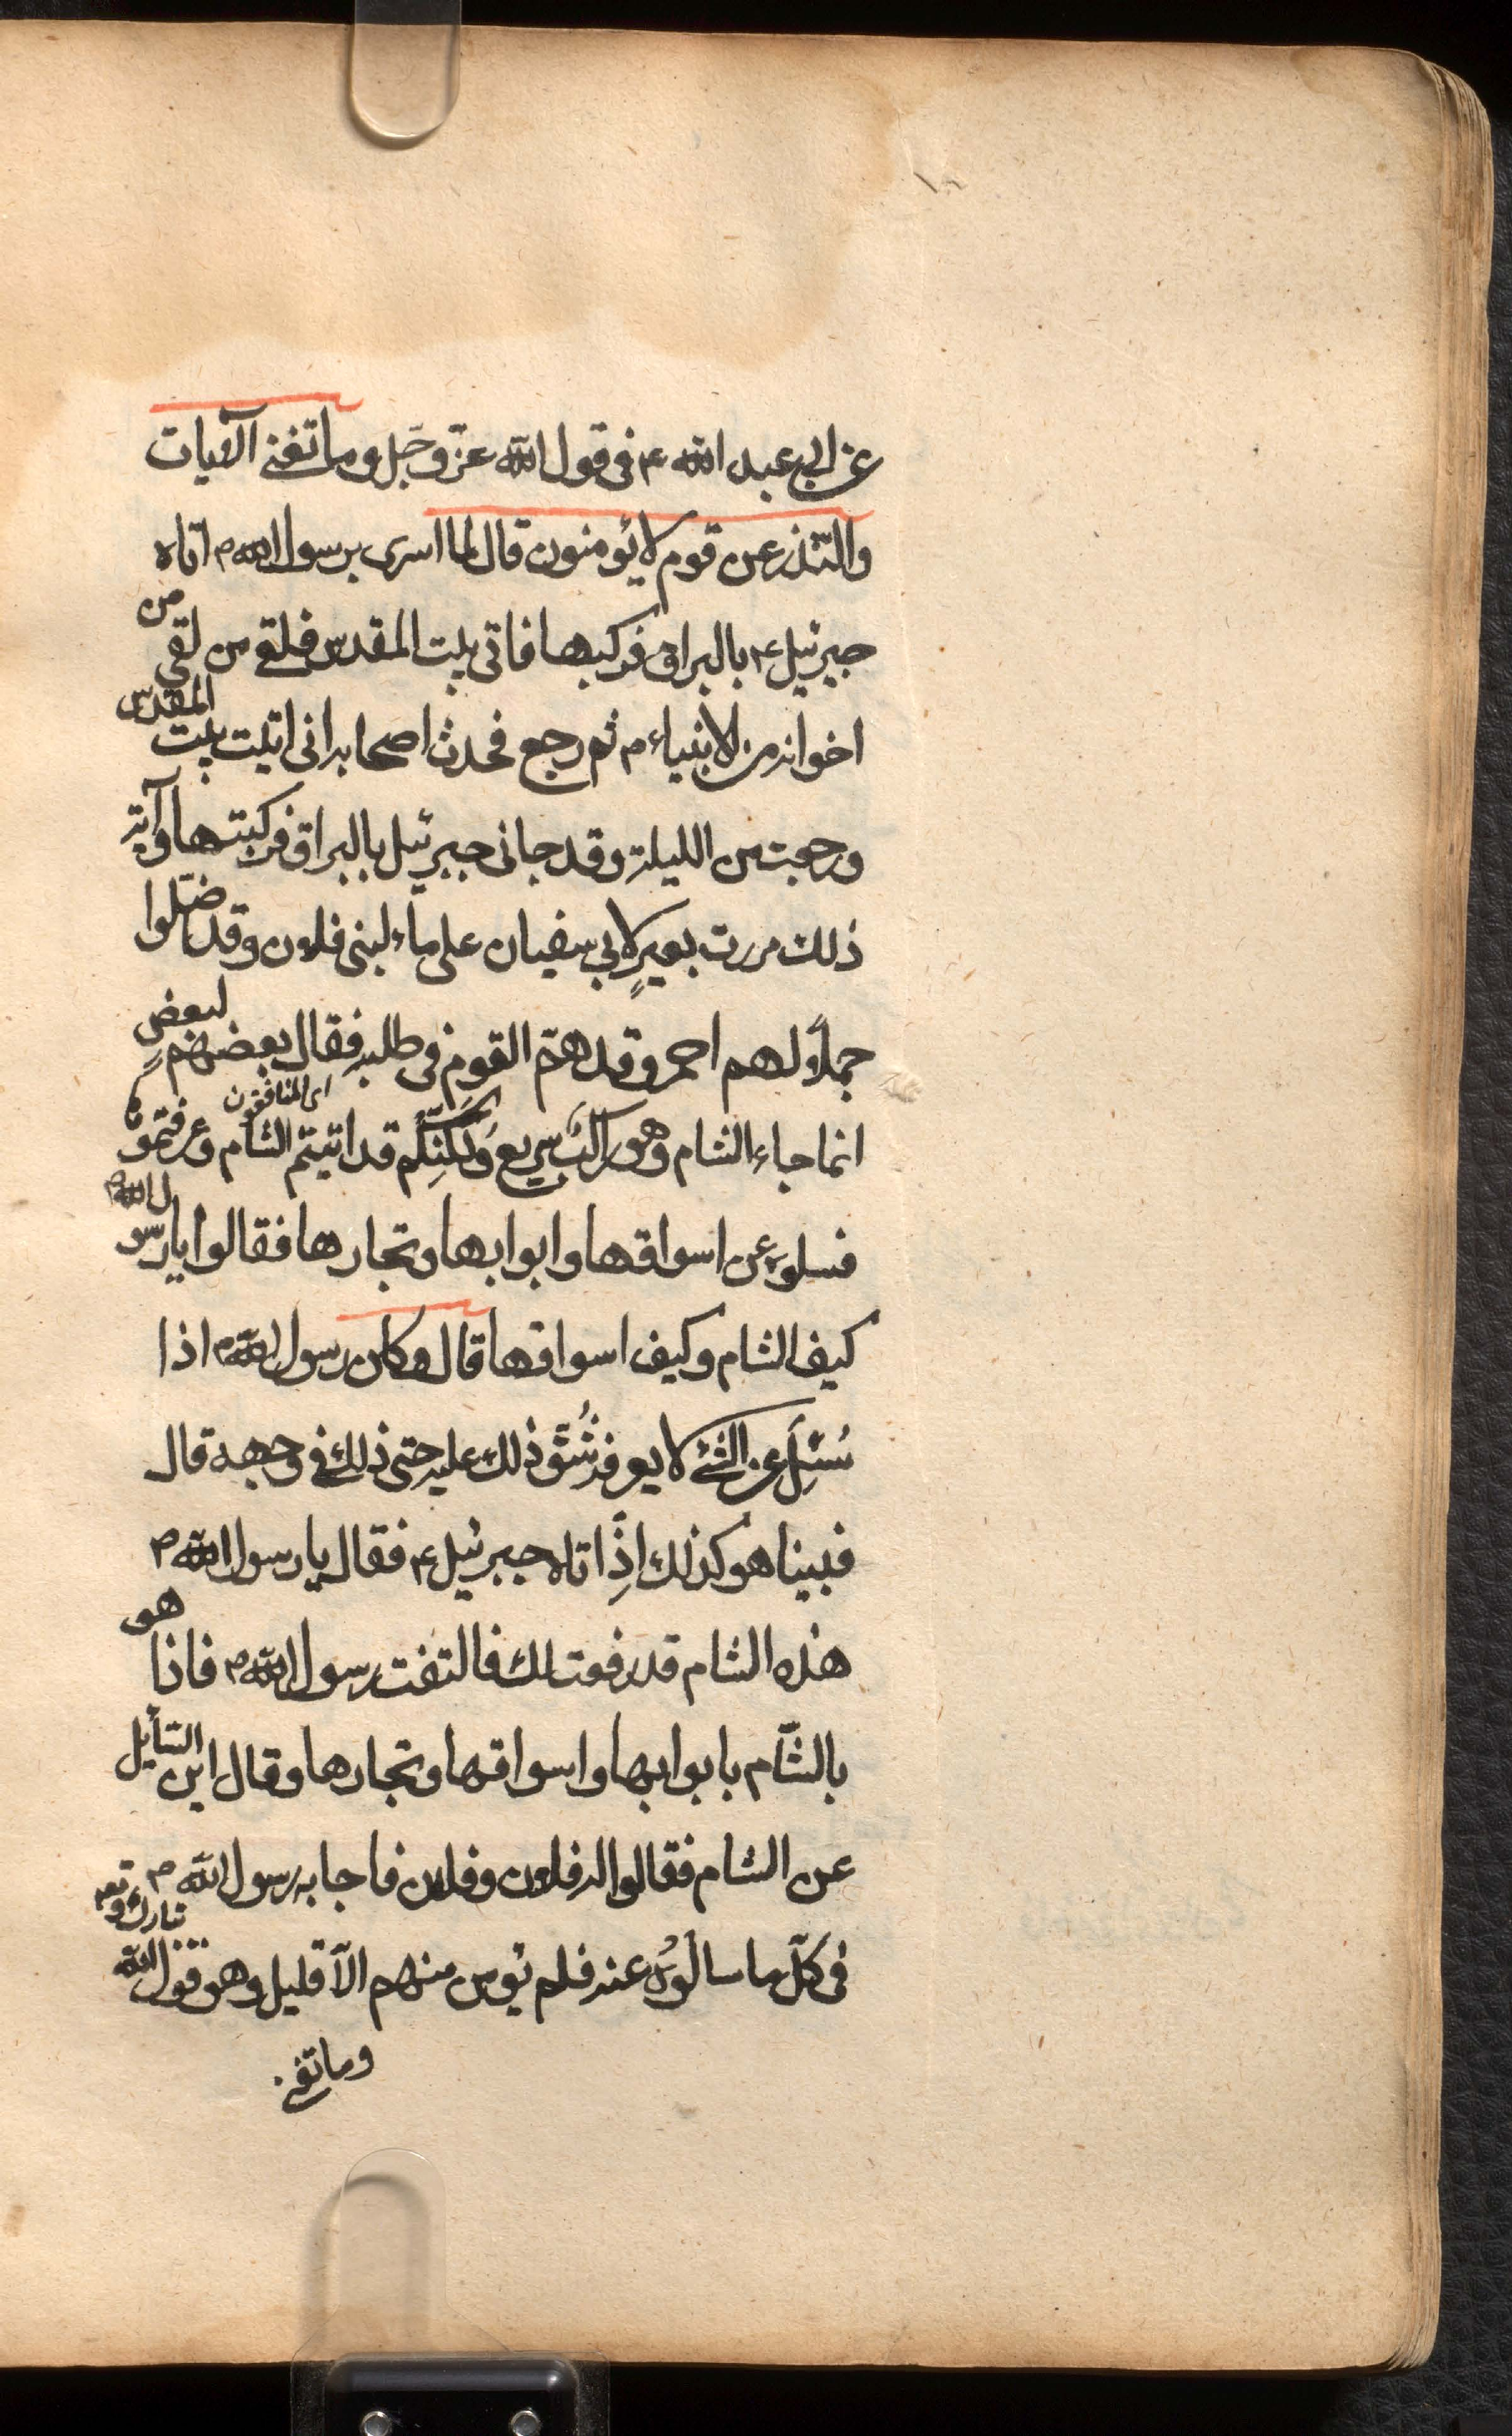 عن ابی عبد الله ع فی قول الله عزّ وجَل وما تغنی الآیات
والنّذر عن قوم لا یؤمنون قال لما اسری برسول الله ص اتاه
جبرئیل ع بالبراق فرکبها فاتی بیت المقدس فلقی من لقی من
اخوانه من الانبیاء م ثم رجع فحدث اصحابه انی اتیت بیت المقدس
ورجعت من اللیلة وقد جانی جبرئیل بالبراق فرکبتها وآیة
ذلك مررت بعیرٍ لابی سفیان علی ماء لبنی فلان وقد ضلّوا
جملاً لهم احمر وقد همّ القوم فی طلبه فقال بعضهم لبعضٍ
ای المنافقون
انما جاء الشام وهو راکبٌ سریع وَلٰکِنّکُم قد اتیتم الشام وعرفتموها
فسلوه عن اسواقها وابوابها وتجارها فقالوا یا رسول الله ص
کیف الشام وکیف اسواقها قال وکان رسول الله ص اذا
سُئِلَ عن الشئ لا یعرفه شُقَّ ذلك علیه حتی ذلك فی وجهه قال
فبینا هو کذلك اِذْ اتاه جبرئیل ع فقال یا رسول الله ص
هذه الشام قد رفعت لك فالتفت رسول الله ص فاذا هو
بالشّام بابوابها واسواقها وتجارها وقال این السّایل
عن الشام فقالوا له فلان وفلان فاجابه رسول الله ص
فی کلّ ما سالُوْهُ عنه فلم یؤمن منهم الّا قلیل وهو قول الله تبارك وتعم
وما تغنی